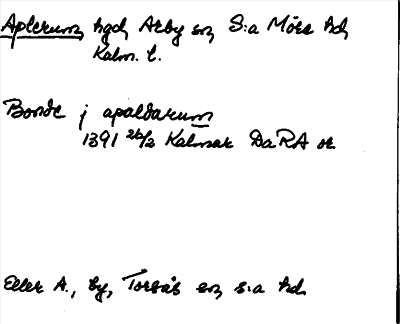 Aplerum, hgd, Arby sn, S:a Möre hd,
Kalm. l.
Bonde j apaldarum
1391 26/2 Kalmar DaRA or
Eller A., by, Torsås sn, s:a hd.